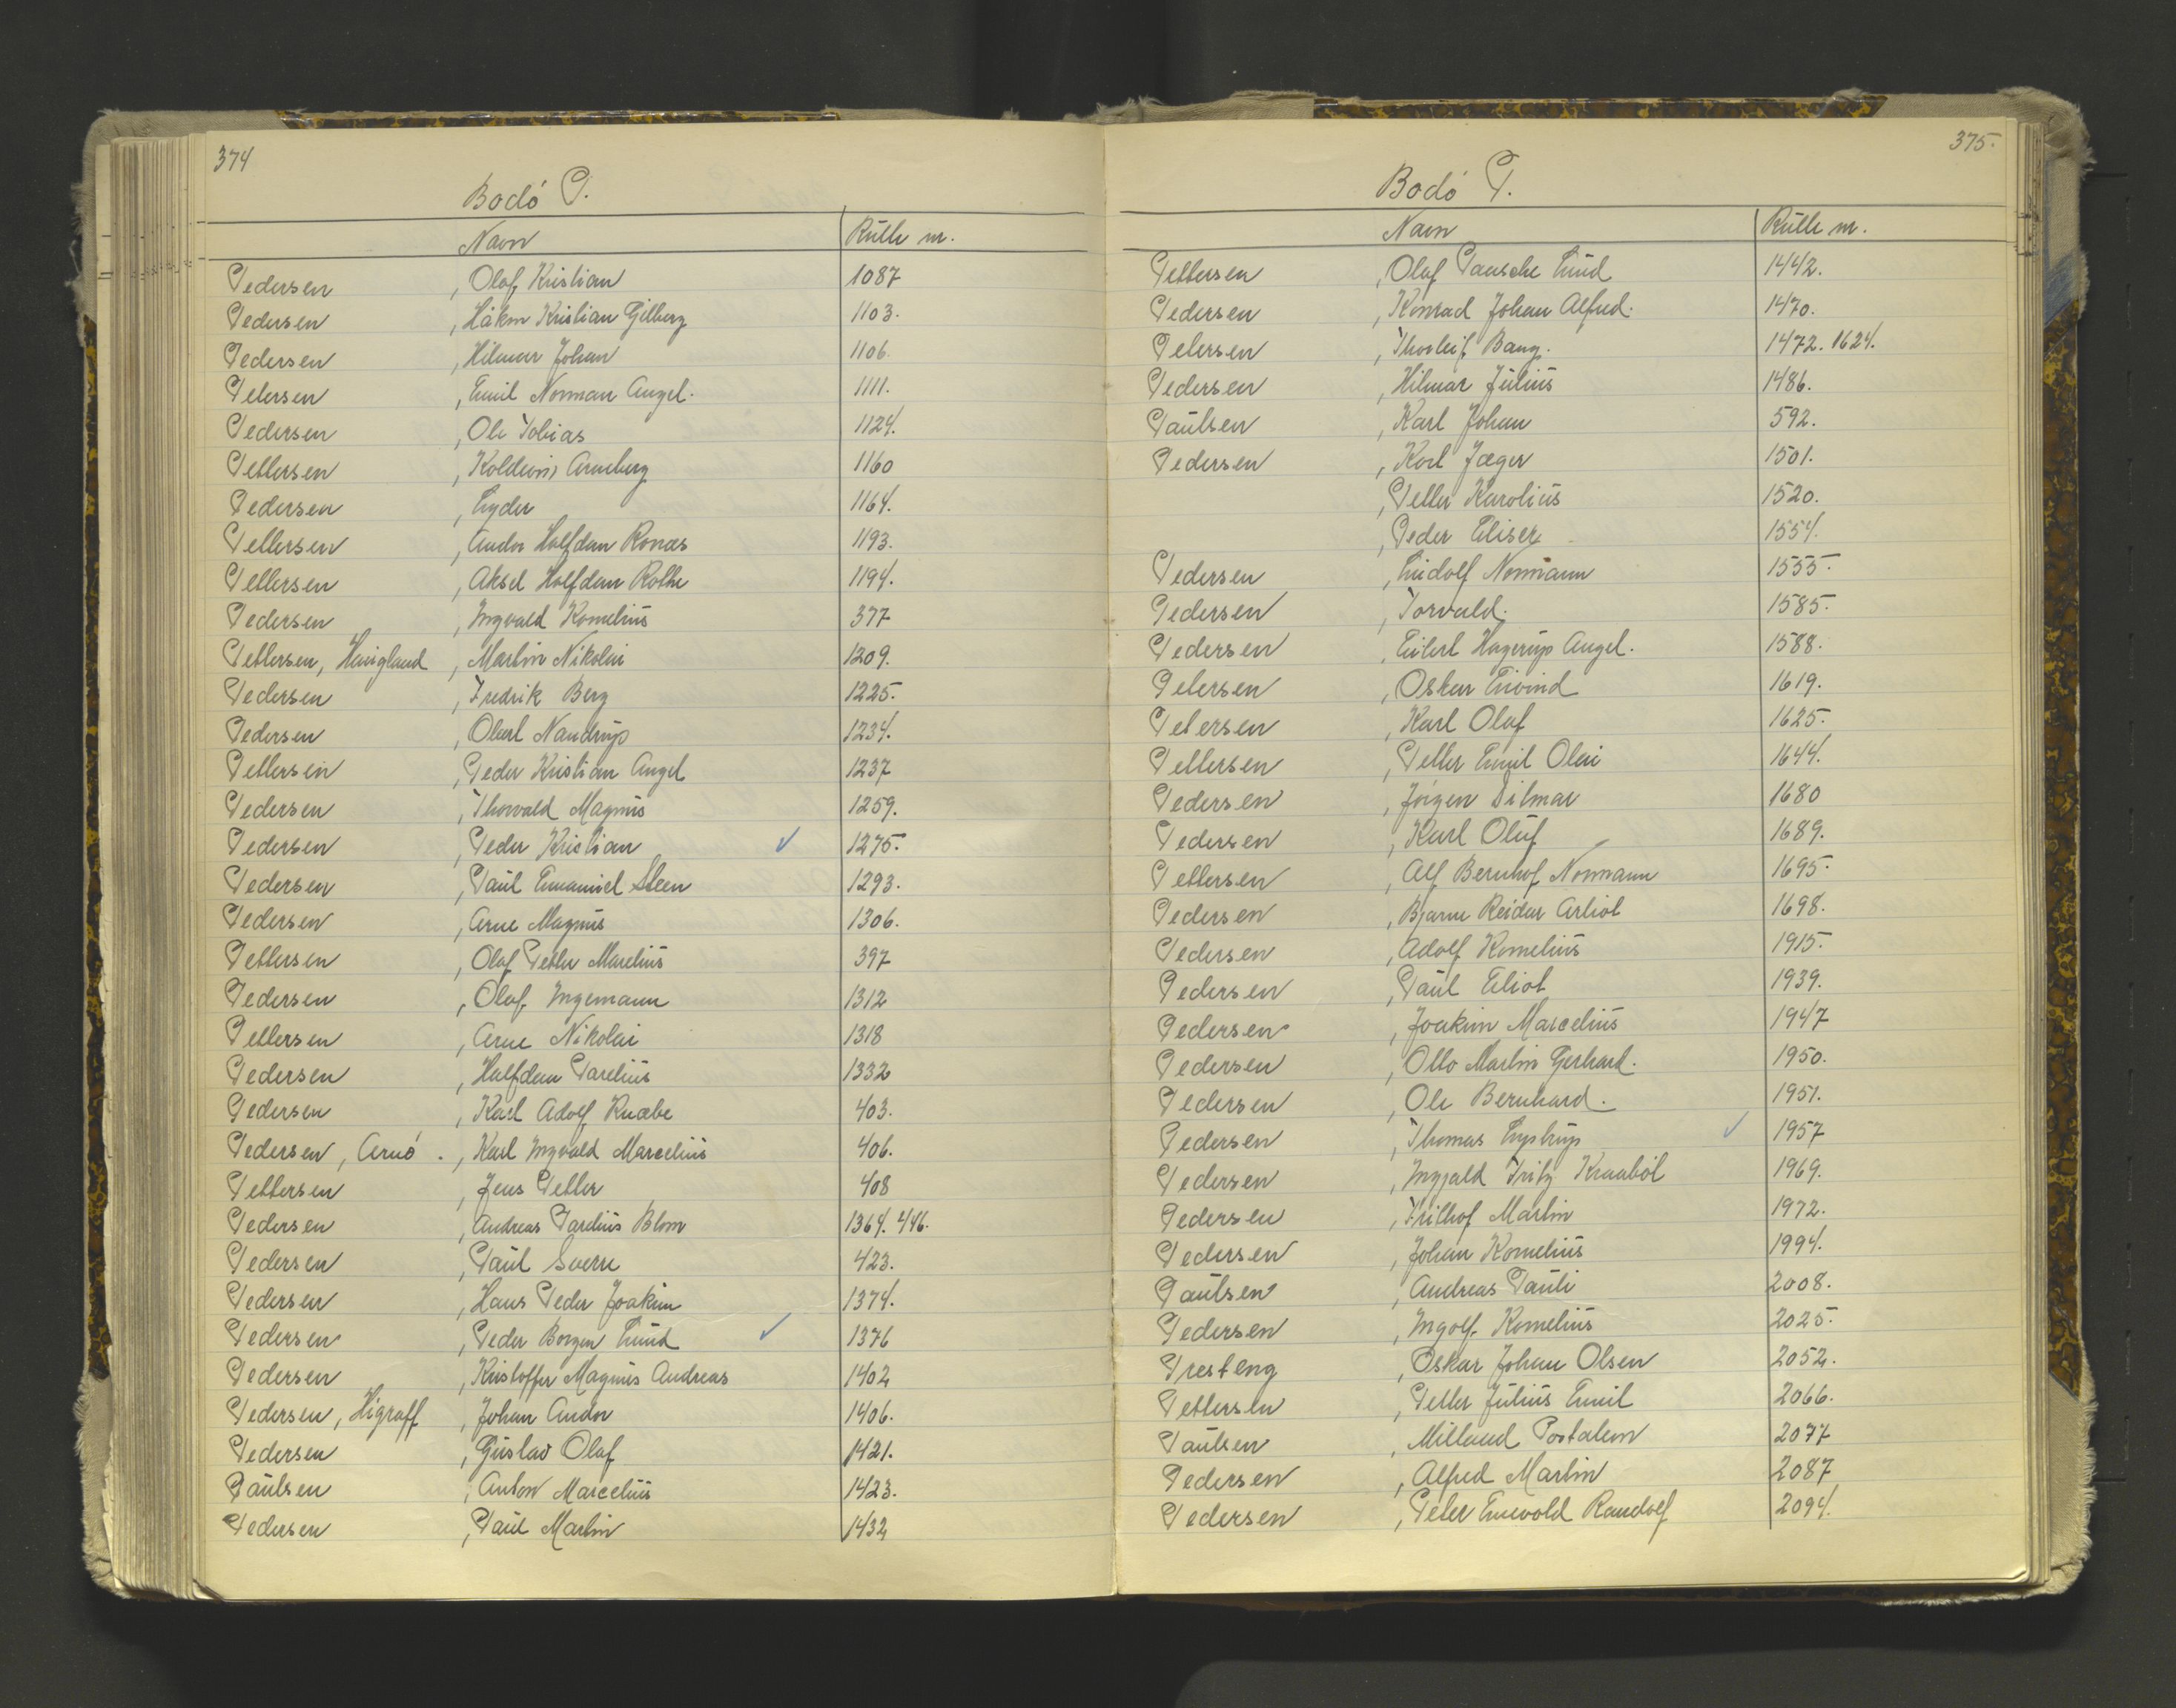 374
Bodó P.
Navn Rulle nr.
Pedersen , Olaf Kristian 1087
Pedersen , Håkon Kristian Gilberg 1103.
Pedersen , Hilmar Johan 1106.
Petersen , Emil Norman Angel. 1111.
Pedersen , Ole Tobias 1124.
Pettersen , Arneberg 1160
Pedersen , Lyder 1164.
Pettersen , Andor Halfdan Ronæs 1193.
Pettersen , Aksel Halfdan Rothe 1194.
Pedersen , Ingvald Kornelius 377
Pettersen, , Martin Nikolai 1209.
Pedersen , Fredrik Berg 1225.
Pedersen , Olarl Nandrup 1234.
Pettersen , Peder Kristian Angel 1237
Pedersen , Thorvald Magnus 1259.
Pedersen , Peder Kristian ✓ 1275.
Pedersen , Paul Emanuel Steen 1293.
Pedersen , Arne Magnus 1306.
Pettersen , Olaf Petter Marelius 397
Pedersen , Olaf Ingemann 1312
Pettersen , Arne Nikolai 1318
Pedersen , Halfdan Parelius 1332
Pedersen , Karl Adolf Knabe 403.
Pedersen, Arnó . , Karl Ingvald Marcelius 406.
Pettersen , Jens Petter 408
Pedersen , Andreas Parelius Blom 1364. 446.
Pedersen , Paul Sverre 423.
Pedersen , Hans Peder Joakim 1374.
Pedersen , Peder Borgen Lund ✓ 1376
Pedersen , Kristoffer Magnus Andreas 1402
Pedersen, Higraff , Johan Andor 1406.
Pedersen , Gustav Olaf 1421.
Paulsen , Anton Marcelius 1423.
Pedersen , Paul Martin 1432
375.
Bodó P.
Navn Rulle nr.
Pettersen , Olaf Pausche Lund 1442.
Pedersen , Konrad Johan Alfred. 1470.
Petersen , Thorleif Bang. 1472. 1624.
Pedersen , Hilmar Julius 1486.
Paulsen , Karl Johan 592.
Pedersen , Karl Jæger 1501.
, Petter Karolius 1520.
, Peder Eliser 1554.
Pedersen , Ludolf Normann 1555.
Pedersen , Torvald. 1585.
Pedersen , Eilert Hagerup Angel. 1588.
Petersen , Oskar Eivind 1619.
Petersen , Karl Olaf 1625.
Pettersen , Petter Emil Olai 1644.
Pedersen , Jørgen Dilmar 1680
Pedersen , Karl Oluf 1689.
Pettersen , Alf Bernhof Normann 1695.
Pedersen , Bjarne Reidar Arliot 1698.
Pedersen , Adolf Kornelius 1915.
Pedersen , Paul Eliot 1939.
Pedersen , Joakim Marcelius 1947
Pedersen , Otto Martin Gerhard. 1950.
Pedersen , Ole Bernhard. 1951.
Pedersen , Thomas Lystrup ✓ 1957
Pedersen , Ingvald Fritz Kraaból 1969.
Pedersen , Frithof Martin 1972.
Pedersen , Johan Kornelius 1994.
Paulsen , Andreas Pauli 2008.
Pedersen , Ingolf Kornelius 2025.
Presteng , Oskar Johan Olsen 2052.
Pettersen , Petter Julius Emil 2066.
Paulsen , Millaud 2077
Pedersen , Alfred Martin 2087
Pedersen , Peter Enevold Randolf 2094.